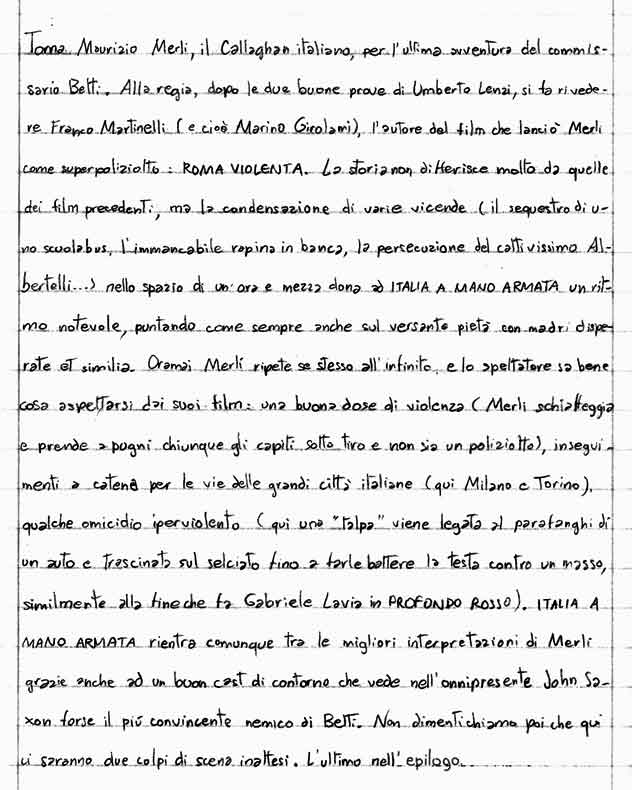 Torna Maurizio Merli, il Callaghan italiano, per l'ultima avventura del commis-
sario Betti. Alla regia, dopo le due buone prove di Umberto Lenzi, si fa rivede-
re Franco Martinelli (e cioè Marino Girolami), l'autore del film che lanciò Merli
come superpoliziotto: ROMA VIOLENTA. La storia non differisce molto da quelle
dei film precedenti, ma la condensazione di varie vicende (il sequestro di u-
no scuolabus, l'immancabile rapina in banca, la persecuzione del cattivissimo Al-
bertelli...) nello spazio di un'ora e mezza dona ad ITALIA A MANO ARMATA un rit-
mo notevole, puntando come sempre anche sul versante pietà con madri dispe-
rate et similia. Oramai Merli ripete se stesso all'infinito, e lo spettatore sa bene
cosa aspettarsi dai suoi film: una buona dose di violenza (Merli schiaffeggia
e prende a pugni chiunque gli capiti sotto tiro e non sia un poliziotto), insegui-
menti a catena per le vie delle grandi città italiane (qui Milano e Torino),
qualche omicidio iperviolento (qui una "talpa" viene legata al parafanghi di
un auto e trascinata sul selciato fino a farle battere la testa contro un masso,
similmente alla fine che fa Gabriele Lavia in PROFONDO ROSSO). ITALIA A
MANO ARMATA rientra comunque tra le migliori interpretazioni di Merli
grazie anche ad un buon cast di contorno che vede nell'onnipresente John Sa-
xon forse il più convincente nemico di Betti. Non dimentichiamo poi che qui
ci saranno due colpi di scena inattesi. L'ultimo nell'epilogo...